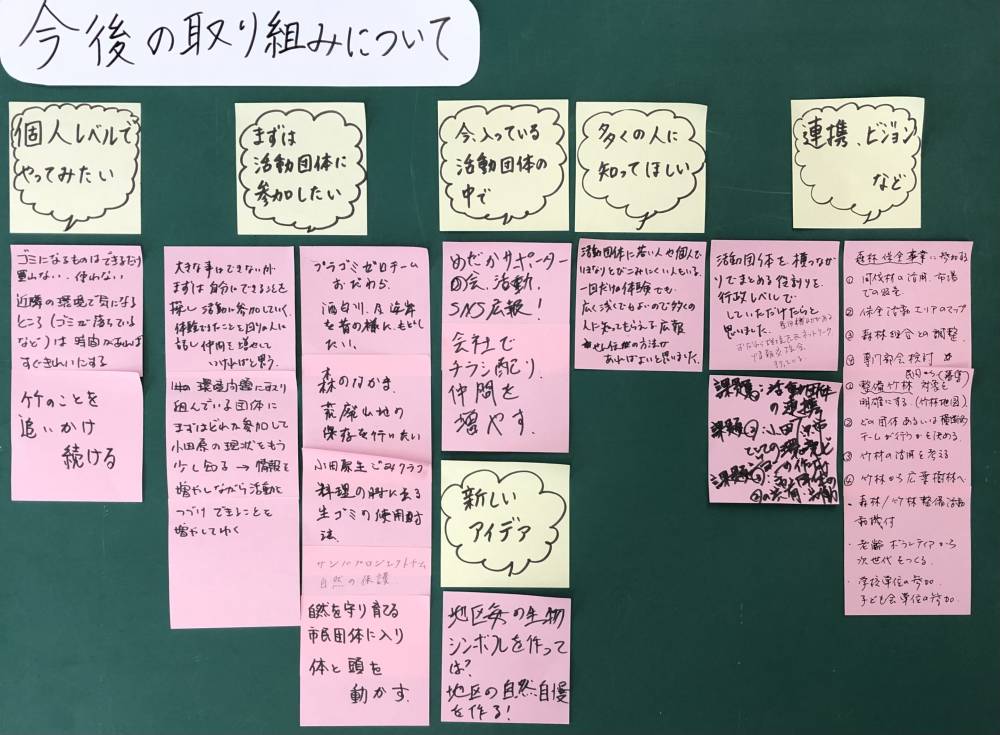 今後の取り組みについて
個人レベルで
やってみたい
ゴミになるものはできるだけ
買わない、使わない
近隣の環境で気になる
ところ(ゴミが落ちている
など)は時間があれば
すぐきれいにする
竹のことを
追いかけ
続ける
まずは
活動団体に
参加したい
大きな事はできないが
まずは自分にできることを
探し活動に参加していく。
体験できたこと回りの人に
話し仲間を増やして
いければと思う。
環境問題に取り
組んでいる団体に
まずはどれか参加して
小田原の現状をもう
少し知る→情報を
増やしながら活動に
つづけできることを
増やしてゆく
プラゴミゼロチーム
おだわら
酒匂川、海岸
を昔の様に、もどし
たい。
森のなかま
荒廃山地の
保存を行いたい
小田原生ごみクラブ
料理の時に出る
生ゴミの使用方
法。
サンノプロジェクトチーム
自然の保護
自然を守り育てる
市民団体に入り
体と頭を
動かす。
今、入っている
活動団体の
中で
めだかサポーター
の会、活動、
SNS広報!
会社で
チラシ配り、
仲間を
増やす。
新しい
アイデア
地区毎の生物
シンボルを作って
は?
地区の自然自慢
を作る!
多くの人に
知ってほしい
活動団体に若い人や個人で
いきなりとびこみにくい人もいる。
一回だけ体験でも
広く浅くでもよいので多くの
人に知ってもらえる広報
やん任せの方法が
あればよいと思いました。
連携、ビジョン
など
活動団体を横つながり
でまとめる役割りを、
行政レベルで
していただけたらと
思いました。
おだわら環境志民ネットワーク
課題①:活動団体
の連携
課題②:小田原市
としての環境ビ
ジョンの作成
課題③:
の共有・
森林保全事業に参加する
① 間伐材の活用、市場
での販売
② 保全活動エリアのマップ
③ 森林組合との調整
④ 専門部会検討
① 整備竹林 対象を
明確にする。(竹林地図)
② どの団体あるいは横断的
チームが行うかを決める。
③ 竹材の活用を考える
④ 竹林から広葉樹林へ
・森林/竹林整備活動
動機付
・老齢ボランティアから
次世代をつくる。
・学校単位の参加
子ども会単位の参加。